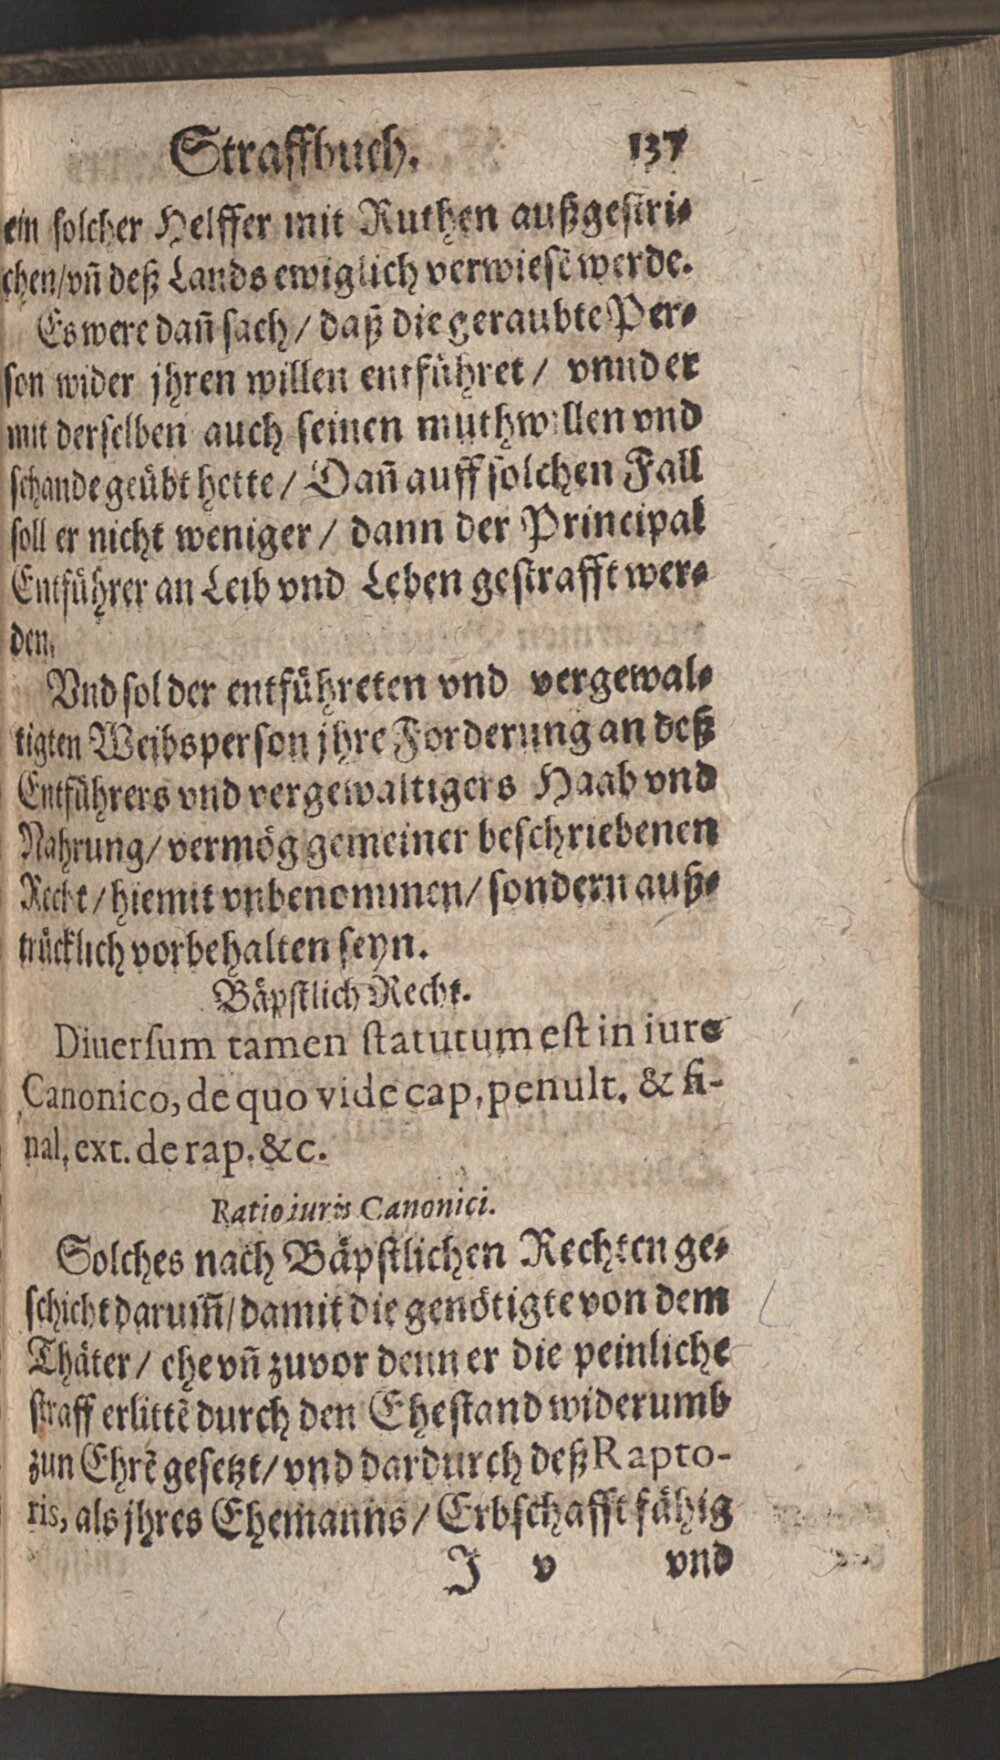 Straffbuch. 137
ein solcher Helffer mit Ruthen außgestri-
chen/vñ deß Lands ewiglich verwiesẽ werde.
Es were dañ sach/ daß die geraubte Per-
son wider jhren willen entführet/ vnnd er
mit derselben auch seinen muthwillen vnd
schande geübt hette/ Dañ auff solchen Fall
soll er nicht weniger/ dann der Principal
Entführer an Leib vnd Leben gestrafft wer-
den.
Vnd sol der entführeten vnd vergewal-
tigten Weibsperson jhre Forderung an deß
Entführers vnd vergewaltigers Haab vnd
Nahrung/ vermög gemeiner beschriebenen
Recht/ hiemit vnbenommen/ sondern auß-
trücklich vorbehalten seyn.
Bäpstlich Recht.
Diuersum tamen statutum est in iure
Canonico, de quo vide cap, penult. & fi-
nal, ext. de rap. &c.
Ratio iuris Canonici.
Solches nach Bäpstlichen Rechten ge-
schicht darum̃/ damit die genötigte von dem
Thäter/ ehe vñ zuvor denn er die peinliche
straff erlittẽ durch den Ehestand widerumb
zun Ehrẽ gesetzt/ vnd dardurch deß Rapto-
ris, als jhres Ehemanns/ Erbschafft fähig
J v vnd